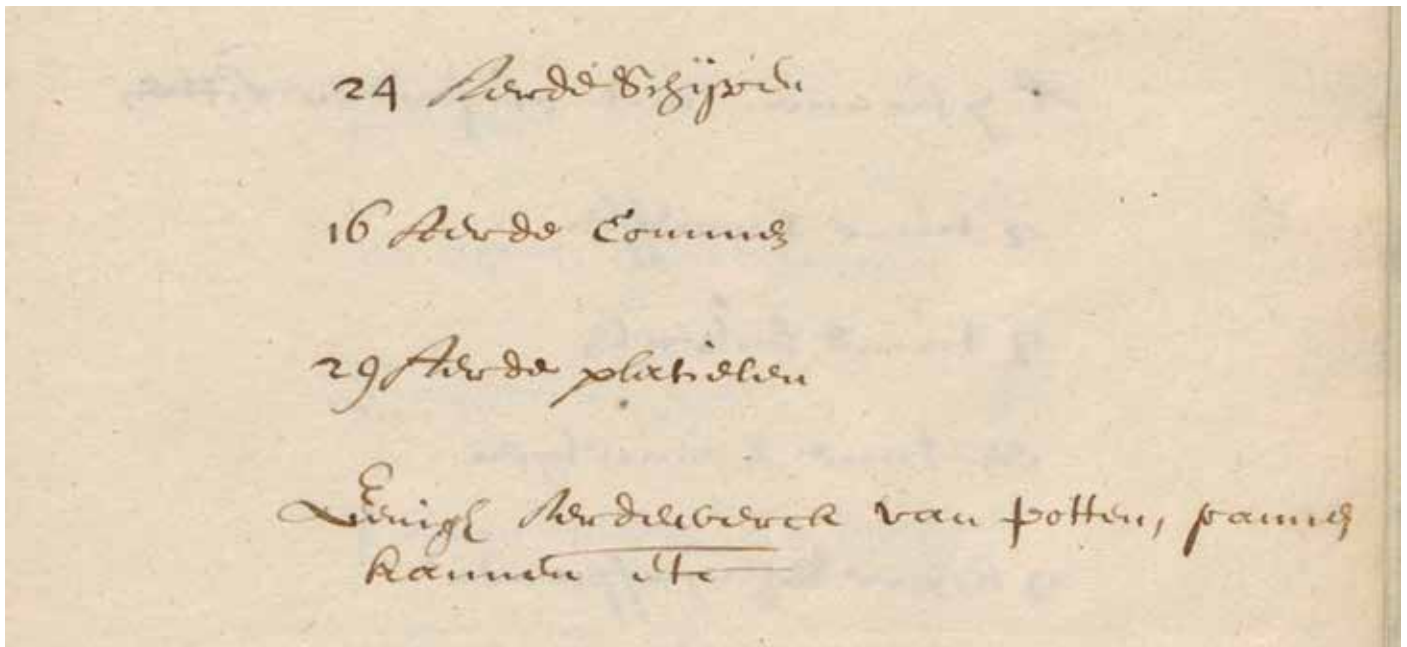 24 Aerde Schijven
16 Aerde Commen
29 Aerde platielen
Eenigh Aerdewerck van potten, pannen
kannen etc